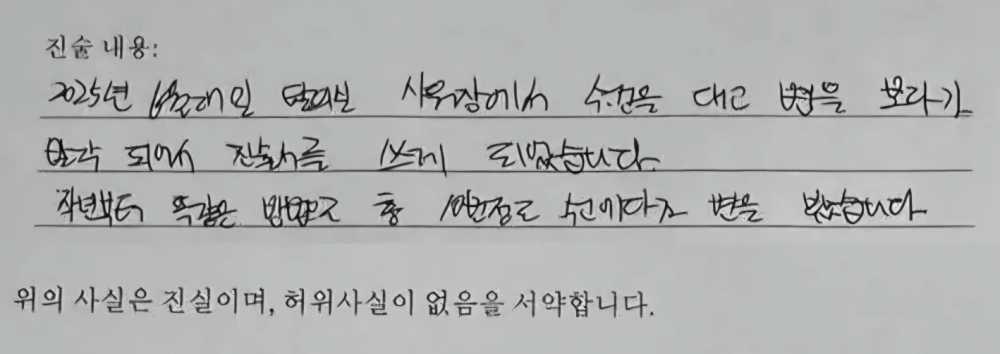 진술 내용:
2025년 사우장에서 수건을 대고 변을 보다가
발각 되어서 진술서를 쓰게 되었습니다.
작년부터 똑같은 방법으로 총 10번정도 수건에다가 변을 보았습니다
위의 사실은 진실이며, 허위사실이 없음을 서약합니다.